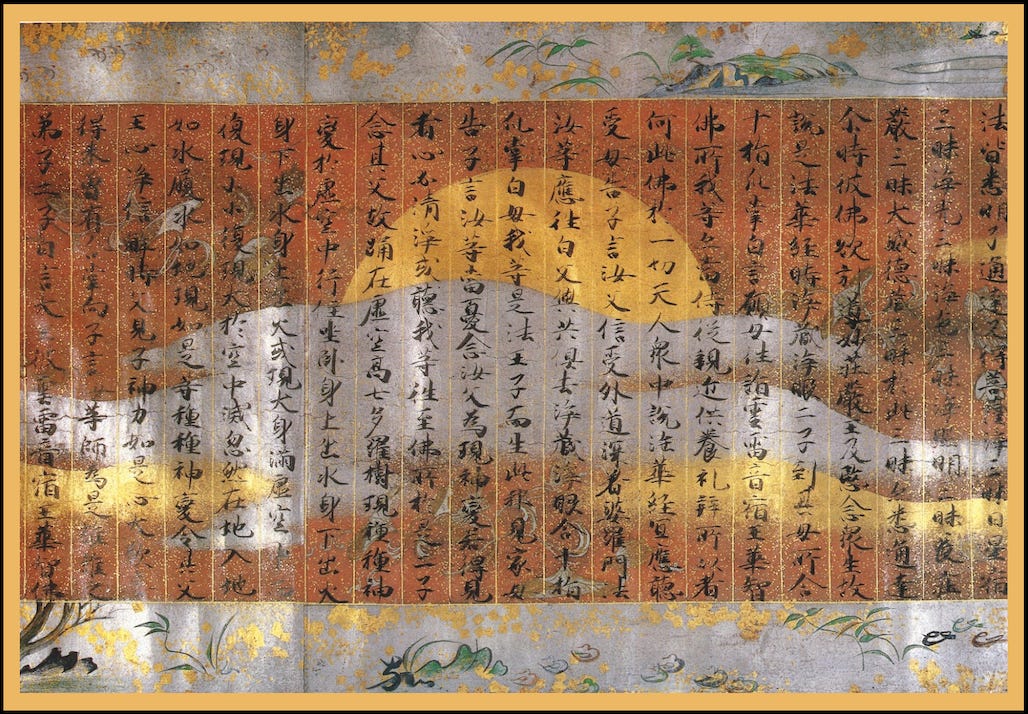 法皆悉明了通達又得菩薩淨三昧日星宿
三昧淨光三昧淨色三昧淨照明三昧長莊
嚴三昧大威德藏三昧於此三昧亦悉通達
尒時彼佛欲引導妙莊嚴王及愍念眾生故
說是法華經時淨藏淨眼二子到其母所合
十指爪掌白言願母往詣雲雷音宿王華智
佛所我等亦當侍從親近供養礼拜所以者
何此佛於一切天人眾中說法華經宜應聽
受母告子言汝父信受外道深著婆羅門法
汝等應往白父與共俱去淨藏淨眼合十指
爪掌白母我等是法王子而生此邪見家母
告子言汝等當憂念汝父為現神變若得見
者心必清淨或聽我等往至佛所於是二子
念其父故踊在虛空高七多羅樹現種種神
變於虛空中行住坐臥身上出水身下出火
身下出水身上出火或現大身滿虛空中
復現小小復現大於空中滅忽然在地入地
如水履水如地現如是等種種神變令其父
王心淨信解時父見子神力如是心大歡
得未曾有合掌向子言汝等師為是誰誰之
弟子二子白言大 彼雲雷音宿王華智佛